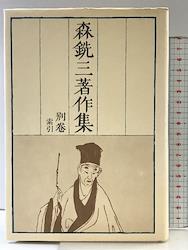 森銑三著作集
別巻
索引